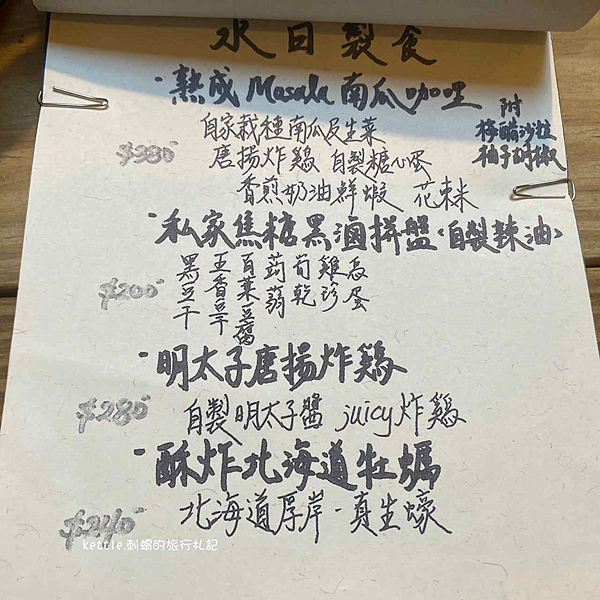 水日製食
·熟成Masala南瓜咖哩
附
梅醋沙拉
柚子胡椒
自家栽種南瓜及生菜
$380
唐揚炸鷄 自製糖心蛋
香煎奶油鮮蝦 花耒米
·私家焦糖黑滷拼盤〈自製辣油〉
$200
黑豆干 五香豆干 百葉豆腐 蒟蒻 筍乾 雞珍 鳥蛋
·明太子唐揚炸鷄
$280
自製明太子醬 juicy炸鷄
·酥炸北海道牡蠣
$240
北海道厚岸-真生蠔
kettle.刺蝟的旅行札記